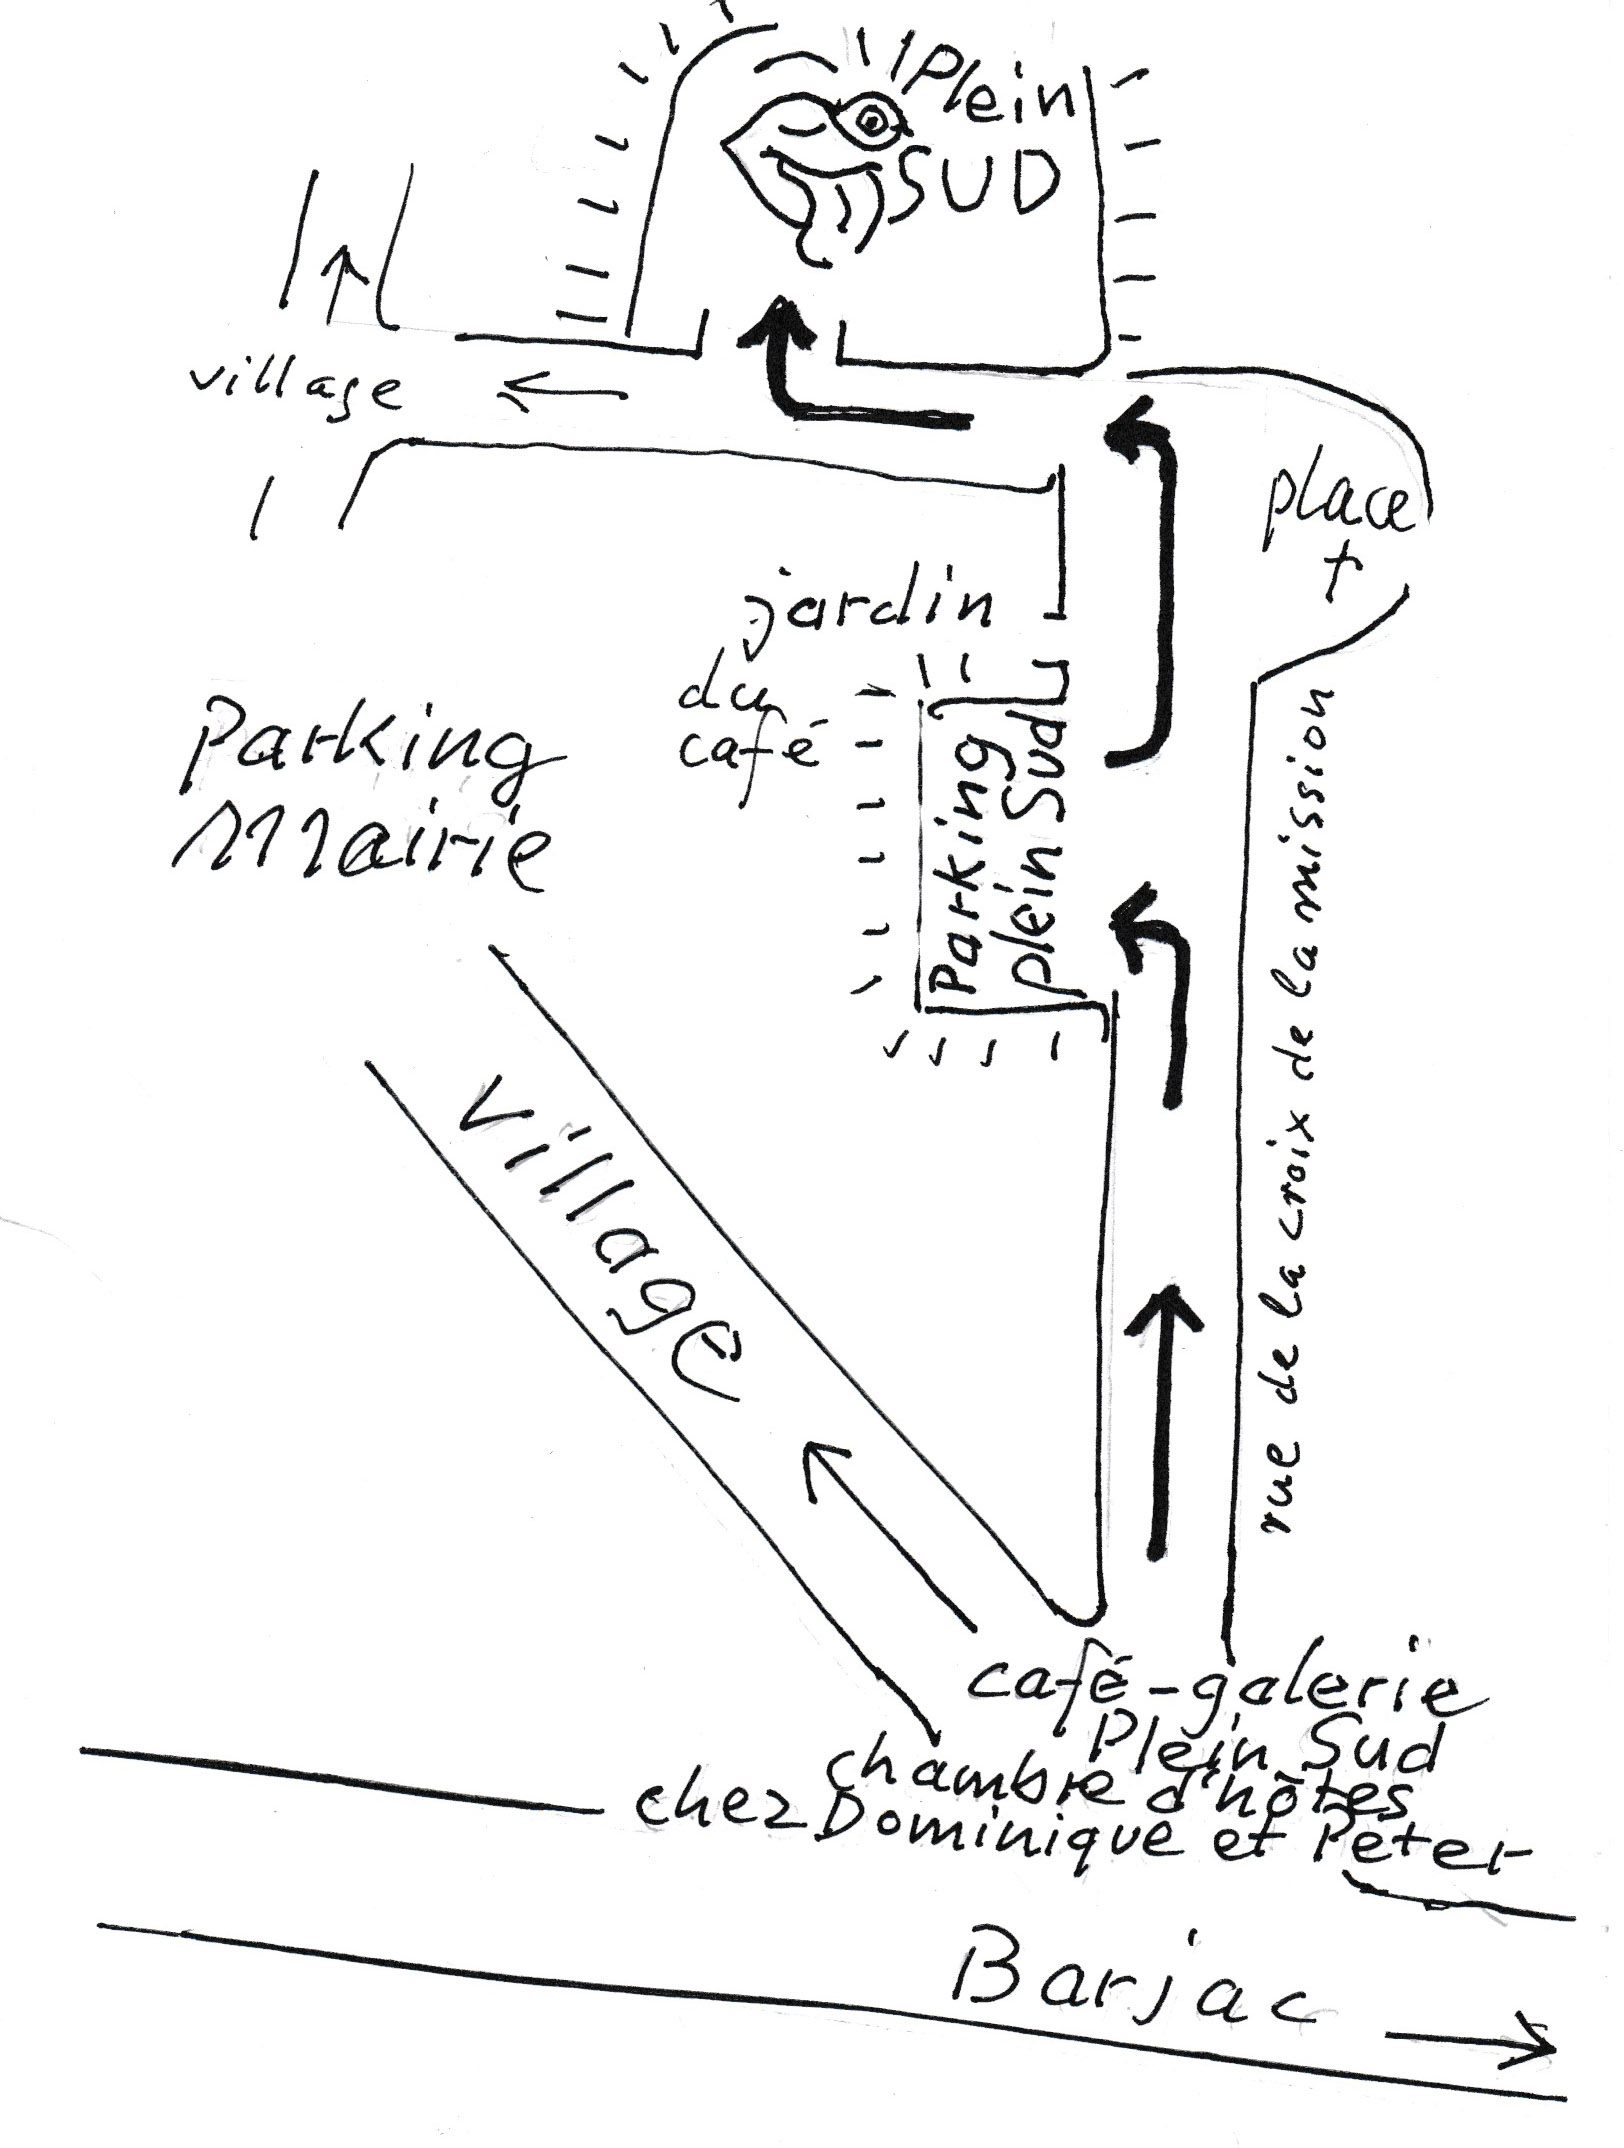 Plein
SUD
village
place
jardin
du
café
Parking
plein Sud
Parking
Mairie
rue de la croix de la mission
village
café-galerie
Plein Sud
chambre d'hôtes
chez Dominique et Peter
Barjac